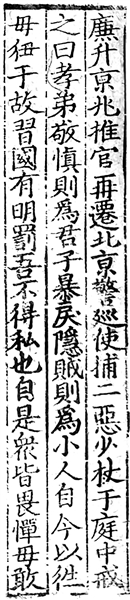 廉升京兆推官再遷北京警廵使捕二惡少杖于庭中戒
之曰孝弟敬慎則爲君子暴戾隱賊則爲小人自今以徃
毋狃于故習國有明罰吾不得私也自是衆皆畏憚毋敢